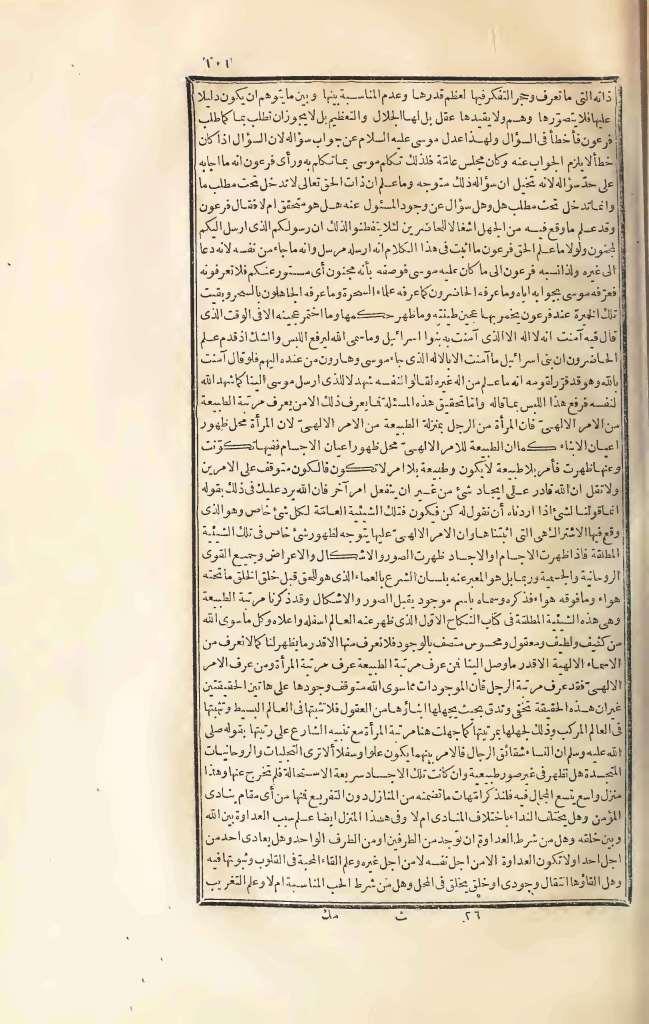 ٢٠١
ذاته التى ما تعرف وحجر التفكر فيها لعظم قدرها وعدم المناسبة بينها وبين ما يتوهم ان يكون دليلا
عليها فلا يتصورها وهم ولا يقيدها عقل بل لها الجلال والتعظيم بل لا يجوز ان تطلب بما كما طلب
فرعون فأخطأ فى السؤال ولهذا عدل موسى عليه السلام عن جواب سؤاله لان السؤال اذا كان
خطأ لا يلزم الجواب عنه وكان مجلس عامة فلذلك تكلم موسى بما تكلم به ورأى فرعون انه ما اجابه
على حد سؤاله لانه تخيل ان سؤاله ذلك متوجه وما علم ان ذات الحق تعالى لا تدخل تحت مطلب ما
وانما تدخل تحت مطلب هل وهل سؤال عن وجود المسئول عنه هل هو متحقق ام لا فقال فرعون
وقد علم ما وقع فيه من الجهل اشغالا للحاضرين لئلا يتفطنوا لذلك ان رسولكم الذى ارسل اليكم
لمجنون ولولا ما علم الحق فرعون ما اثبت فى هذا الكلام انه ارسله مرسل وانه ما جاء من نفسه لانه دعا
الى غيره ولذا نسبه فرعون الى ما كان عليه موسى فوصفه بأنه مجنون أى مستور عنكم فلا تعرفونه
فعرفه موسى بجوابه اياه وما عرفه الحاضرون كما عرفه علماء السحرة وما عرفه الجاهلون بالسحر وبقيت
تلك الخميرة عند فرعون يختمر بها عجين طينته وما ظهر حكمها وما اختمر عجينه الا فى الوقت الذى
قال فيه آمنت انه لا اله الا الذى آمنت به بنوا اسرائيل وما سمى الله ليرفع اللبس والشك اذ قد علم
الحاضرون ان بنى اسرائيل ما آمنت الا بالاله الذى جاء موسى وهارون من عنده اليهم فلو قال آمنت
بالله وهو قد قرر لقومه انه ما علم من اله غيره لقالوا لنفسه شهد لا للذى ارسل موسى الينا كما شهد الله
لنفسه فرفع هذا اللبس بما قاله واما تحقيق هذه المسئلة فما يعرف ذلك الا من يعرف مرتبة الطبيعة
من الامر الالهىّ فان المرأة من الرجل بمنزلة الطبيعة من الامر الالهىّ لان المرأة محل ظهور
اعيان الابناء كما ان الطبيعة للامر الالهىّ محل ظهور اعيان الاجسام ففيها تكوّنت
وعنها ظهرت فأمر بلا طبيعة لا يكون وطبيعة بلا امر لا تكون فالكون متوقف على الامرين
ولا تقل ان الله قادر على ايجاد شئ من غير ان ينفعل امر آخر فان الله يرد عليك فى ذلك بقوله
انما قولنا لشئ اذا اردناه أن نقول له كن فيكون فتلك الشيئية العامة لكل شئ خاص وهو الذى
وقع فيها الاشتراك هى التى اثبتناها وان الامر الالهىّ عليها يتوجه لظهور شئ خاص فى تلك الشيئية
المطلقة فاذا ظهرت الاجسام او الاجساد ظهرت الصور والاشكال والاعراض وجميع القوى
الروحانية والحسية وربما قيل هو المعبر عنه بلسان الشرع بالعماء الذى هو للحق قبل خلق الخلق ما تحته
هواء وما فوقه هواء فذكره وسماه باسم موجود يقبل الصور والاشكال وقد ذكرنا مرتبة الطبيعة
وهى هذه الشيئية المطلقة فى كتاب النكاح الاول الذى ظهر عنه العالم اسفله واعلاه وكل ما سوى الله
من كثيف ولطيف ومعقول ومحسوس متصف بالوجود فلا نعرف منها الا قدر ما يظهر لنا كما لا نعرف من
الاسماء الالهية الا قدر ما وصل الينا فمن عرف مرتبة الطبيعة عرف مرتبة المرأة ومن عرف الامر
الالهىّ فقد عرف مرتبة الرجل فان الموجودات مما سوى الله متوقف وجودها على هاتين الحقيقتين
غير ان هذه الحقيقة تخفى وتدق بحيث يجهلها ابناؤها من العقول فلا تثبتها فى العالم البسيط وتثبتها
فى العالم المركب وذلك لجهلها بمرتبتها كما جهلت هنا مرتبة المرأة مع تنبيه الشارع على رتبتها بقوله صلى
الله عليه وسلم ان النساء شقائق الرجال فالامر بينهما يكون علوا وسفلا ألا ترى التجليات والروحانيات
المتجسدة هل تظهر فى غير صور طبيعية وان كانت تلك الاجساد سريعة الاستحالة فلم تخرج عنها وهذا
منزل واسع يتسع المجال فيه فلنذكر امهات ما تضمنه من المنازل دون التفريع فنها من أى مقام ينادى
المؤمن وهل يختلف النداء باختلاف المنادى ام لا وفى هذا المنزل ايضا علم سبب العداوة بين الله
وبين خلقه وهل من شرط العداوة ان توجد من الطرفين او من الطرف الواحد وهل يعادى احد من
اجل احد او لا تكون العداوة الا من اجل نفسه لا من اجل غيره وعلم القاء المحبة فى القلوب وثبوتها فيه
وهل القاؤها انتقال وجودى او خلق يخلق فى المحل وهل من شرط الحب المناسبة ام لا وعلم التغريب
٢٦ ث مك